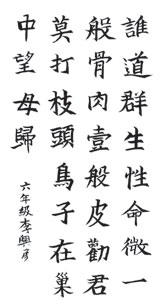 誰道群生性命微一
般骨肉壹般皮勸君
莫打枝頭鳥子在巢
中望母歸
六年級李興彥